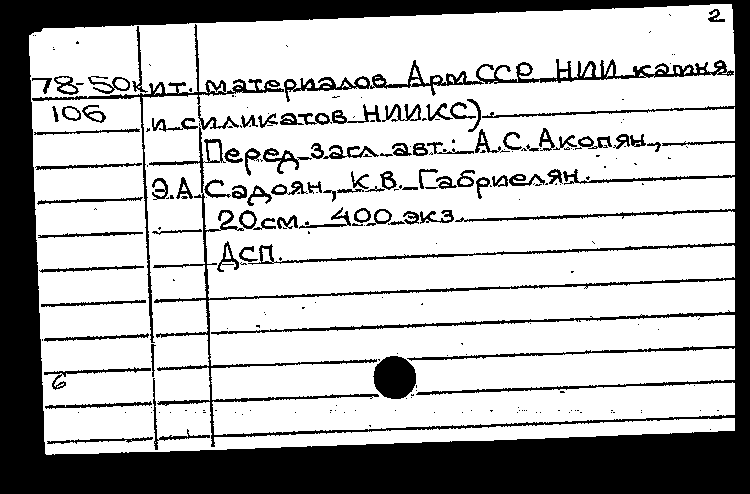 2
78-50к ит. материалов Арм ССР НИИ камня
106 и силикатов НИИКС).
Перед загл. авт.: А.С. Акопян,
Э.А. Садоян, К.В. Габриелян.
20 см. 400 экз.
ДСП.
6